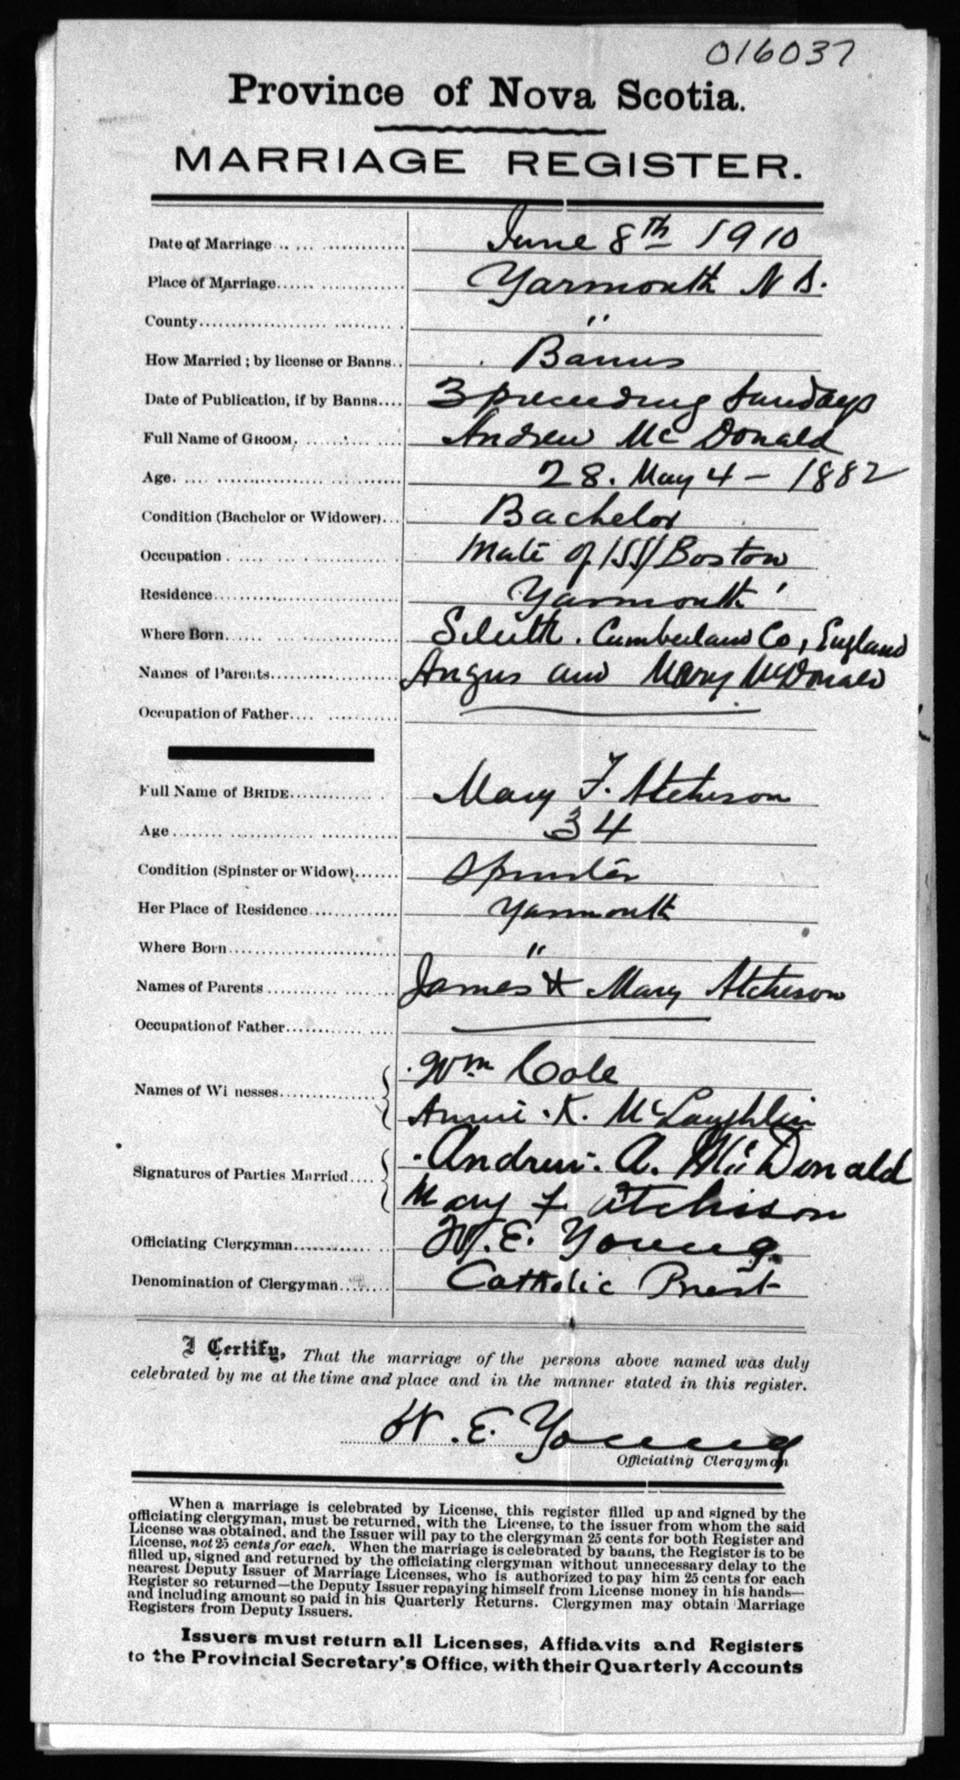 016037
Province of Nova Scotia.
MARRIAGE REGISTER.
Date of Marriage June 8th 1910
Place of Marriage Yarmouth N S.
County "
How Married; by license or Banns.. Banns
Date of Publication, if by Banns.... 3 preceeding Sundays
Full Name of GROOM. Andrew Mc Donald
Age. 28. May 4 - 1882
Condition (Bachelor or Widower)... Bachelor
Occupation Mate of SS Boston
Residence Yarmouth
Where Born Cumberland Co, England
Names of Parents Angus and Mary McDonald
Occupation of Father
Full Name of BRIDE Mary F. Atcheson
Age 34
Condition (Spinster or Widow) Spinster
Her Place of Residence Yarmouth
Where Born "
Names of Parents James & Mary Atcheson
Occupation of Father
Names of Wi nesses Wm Cole
Annie . K. McLaughlin
Signatures of Parties Married Andrew. A. McDonald
Mary F Atchison
Officiating Clergyman W. E. Young.
Denomination of Clergyman Catholic Priest
I Certify, That the marriage of the persons above named was duly
celebrated by me at the time and place and in the manner stated in this register.
W. E. Young
Officiating Clergyman
When a marriage is celebrated by License, this register filled up and signed by the
officiating clergyman, must be returned, with the License, to the issuer from whom the said
License was obtained, and the Issuer will pay to the clergyman 25 cents for both Register and
License, not 25 cents for each. When the marriage is celebrated by banns, the Register is to be
filled up, signed and returned by the officiating clergyman without unnecessary delay to the
nearest Deputy Issuer of Marriage Licenses, who is authorized to pay him 25 cents for each
Register so returned—the Deputy Issuer repaying himself from License money in his hands—
and including amount so paid in his Quarterly Returns. Clergymen may obtain Marriage
Registers from Deputy Issuers.
Issuers must return all Licenses, Affidavits and Registers
to the Provincial Secretary's Office, with their Quarterly Accounts